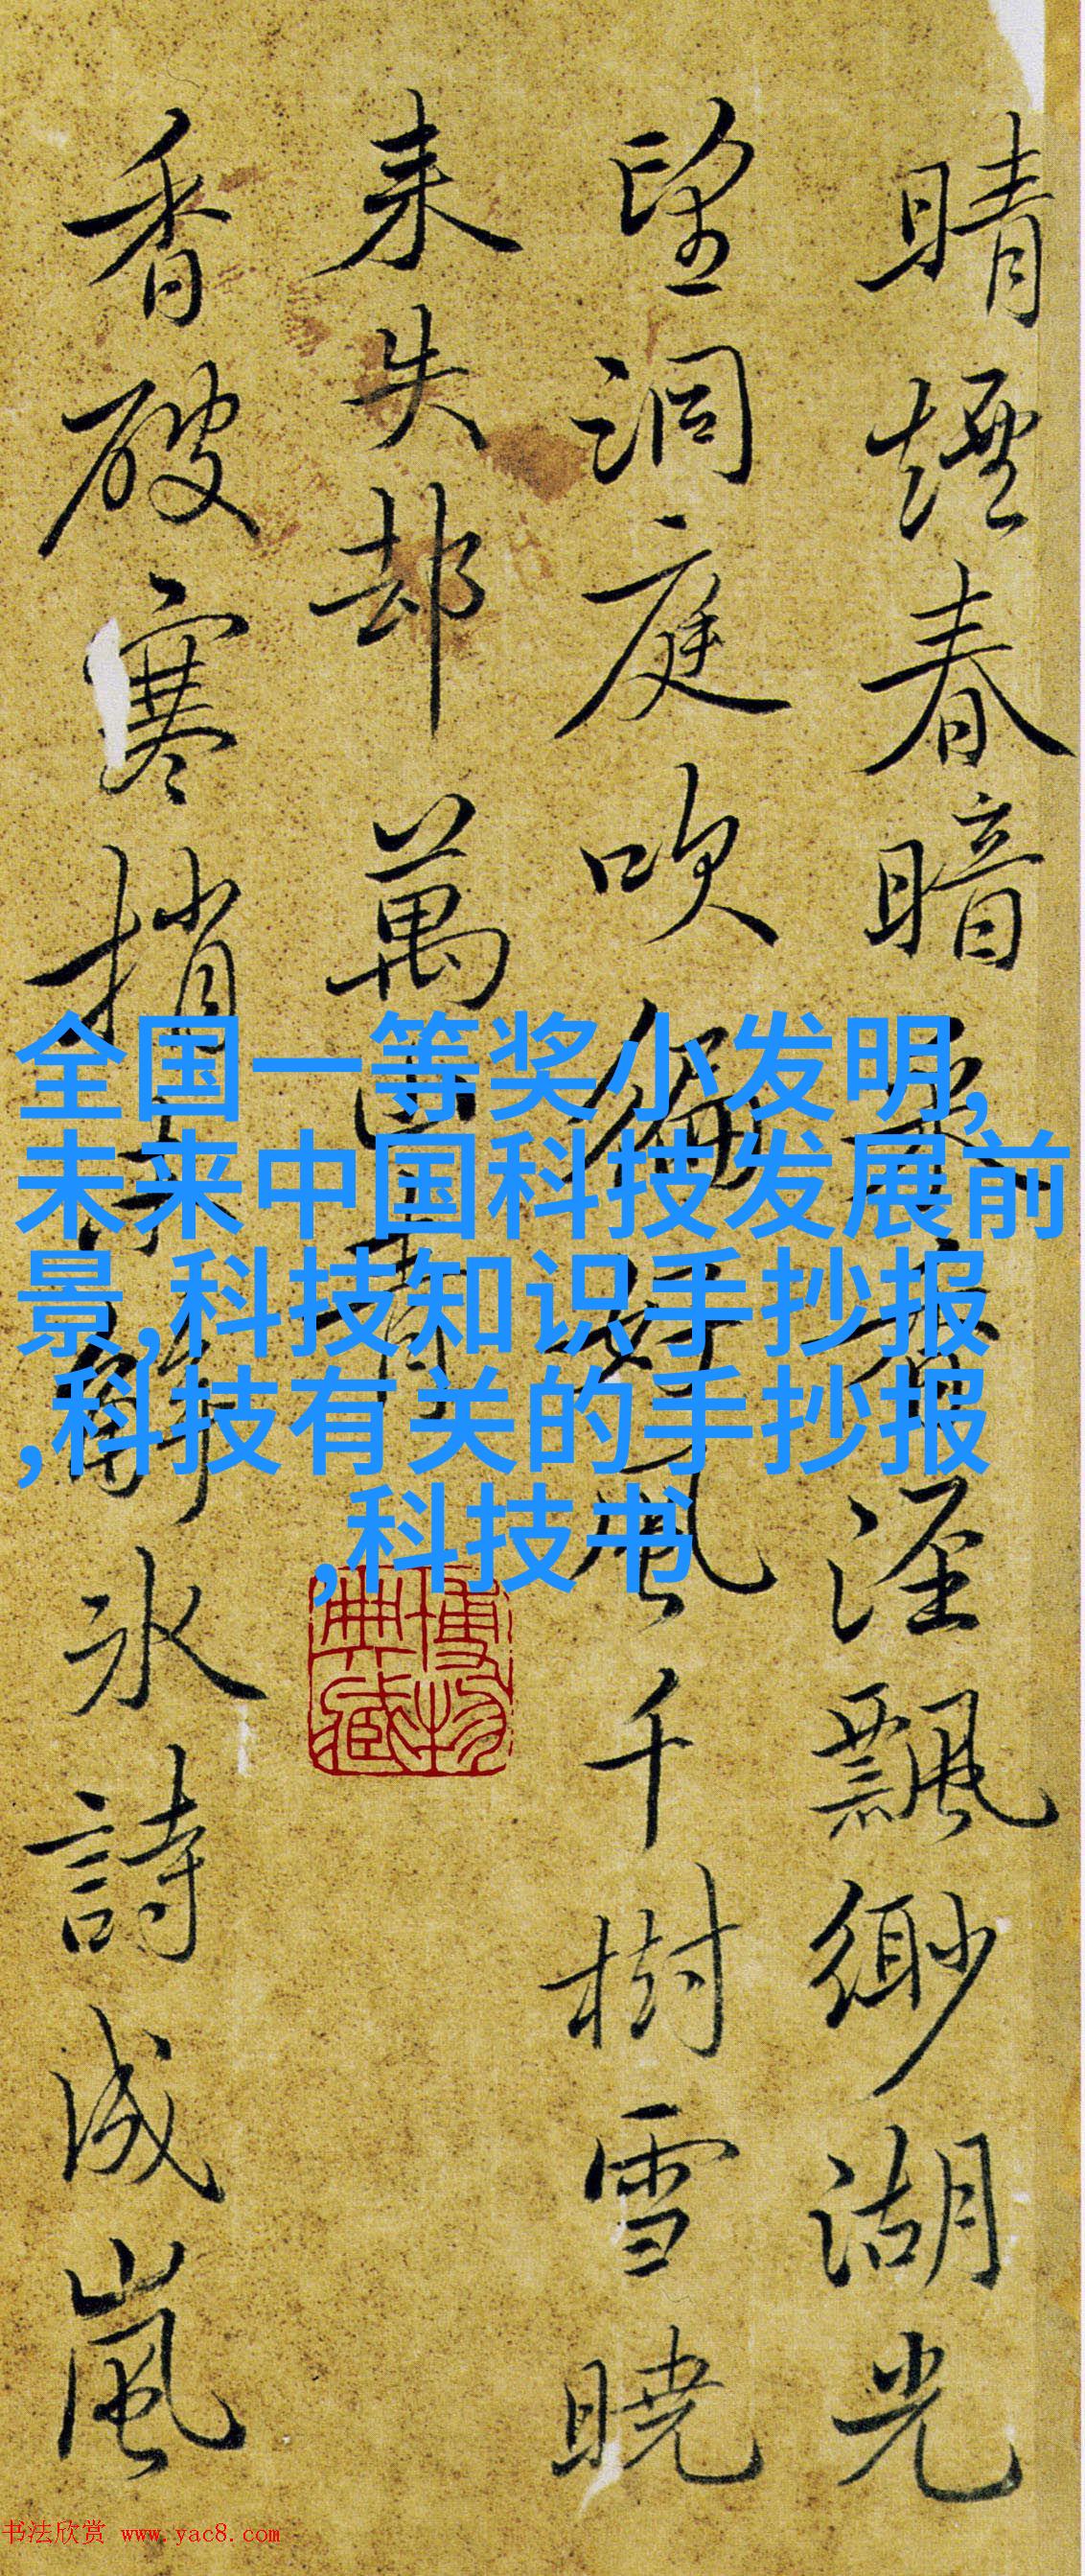 晴煙春暗溼飄緲湖光
望洞庭吹徧好風千樹雪曉
来失却萬山青
香破寒梢解冰詩成嵐
全国一等奖小发明,
未来中国科技发展前
景,科技知识手抄报
,科技有关的手抄报
,科技书
博物
典藏
书法欣赏 www.yac8.com